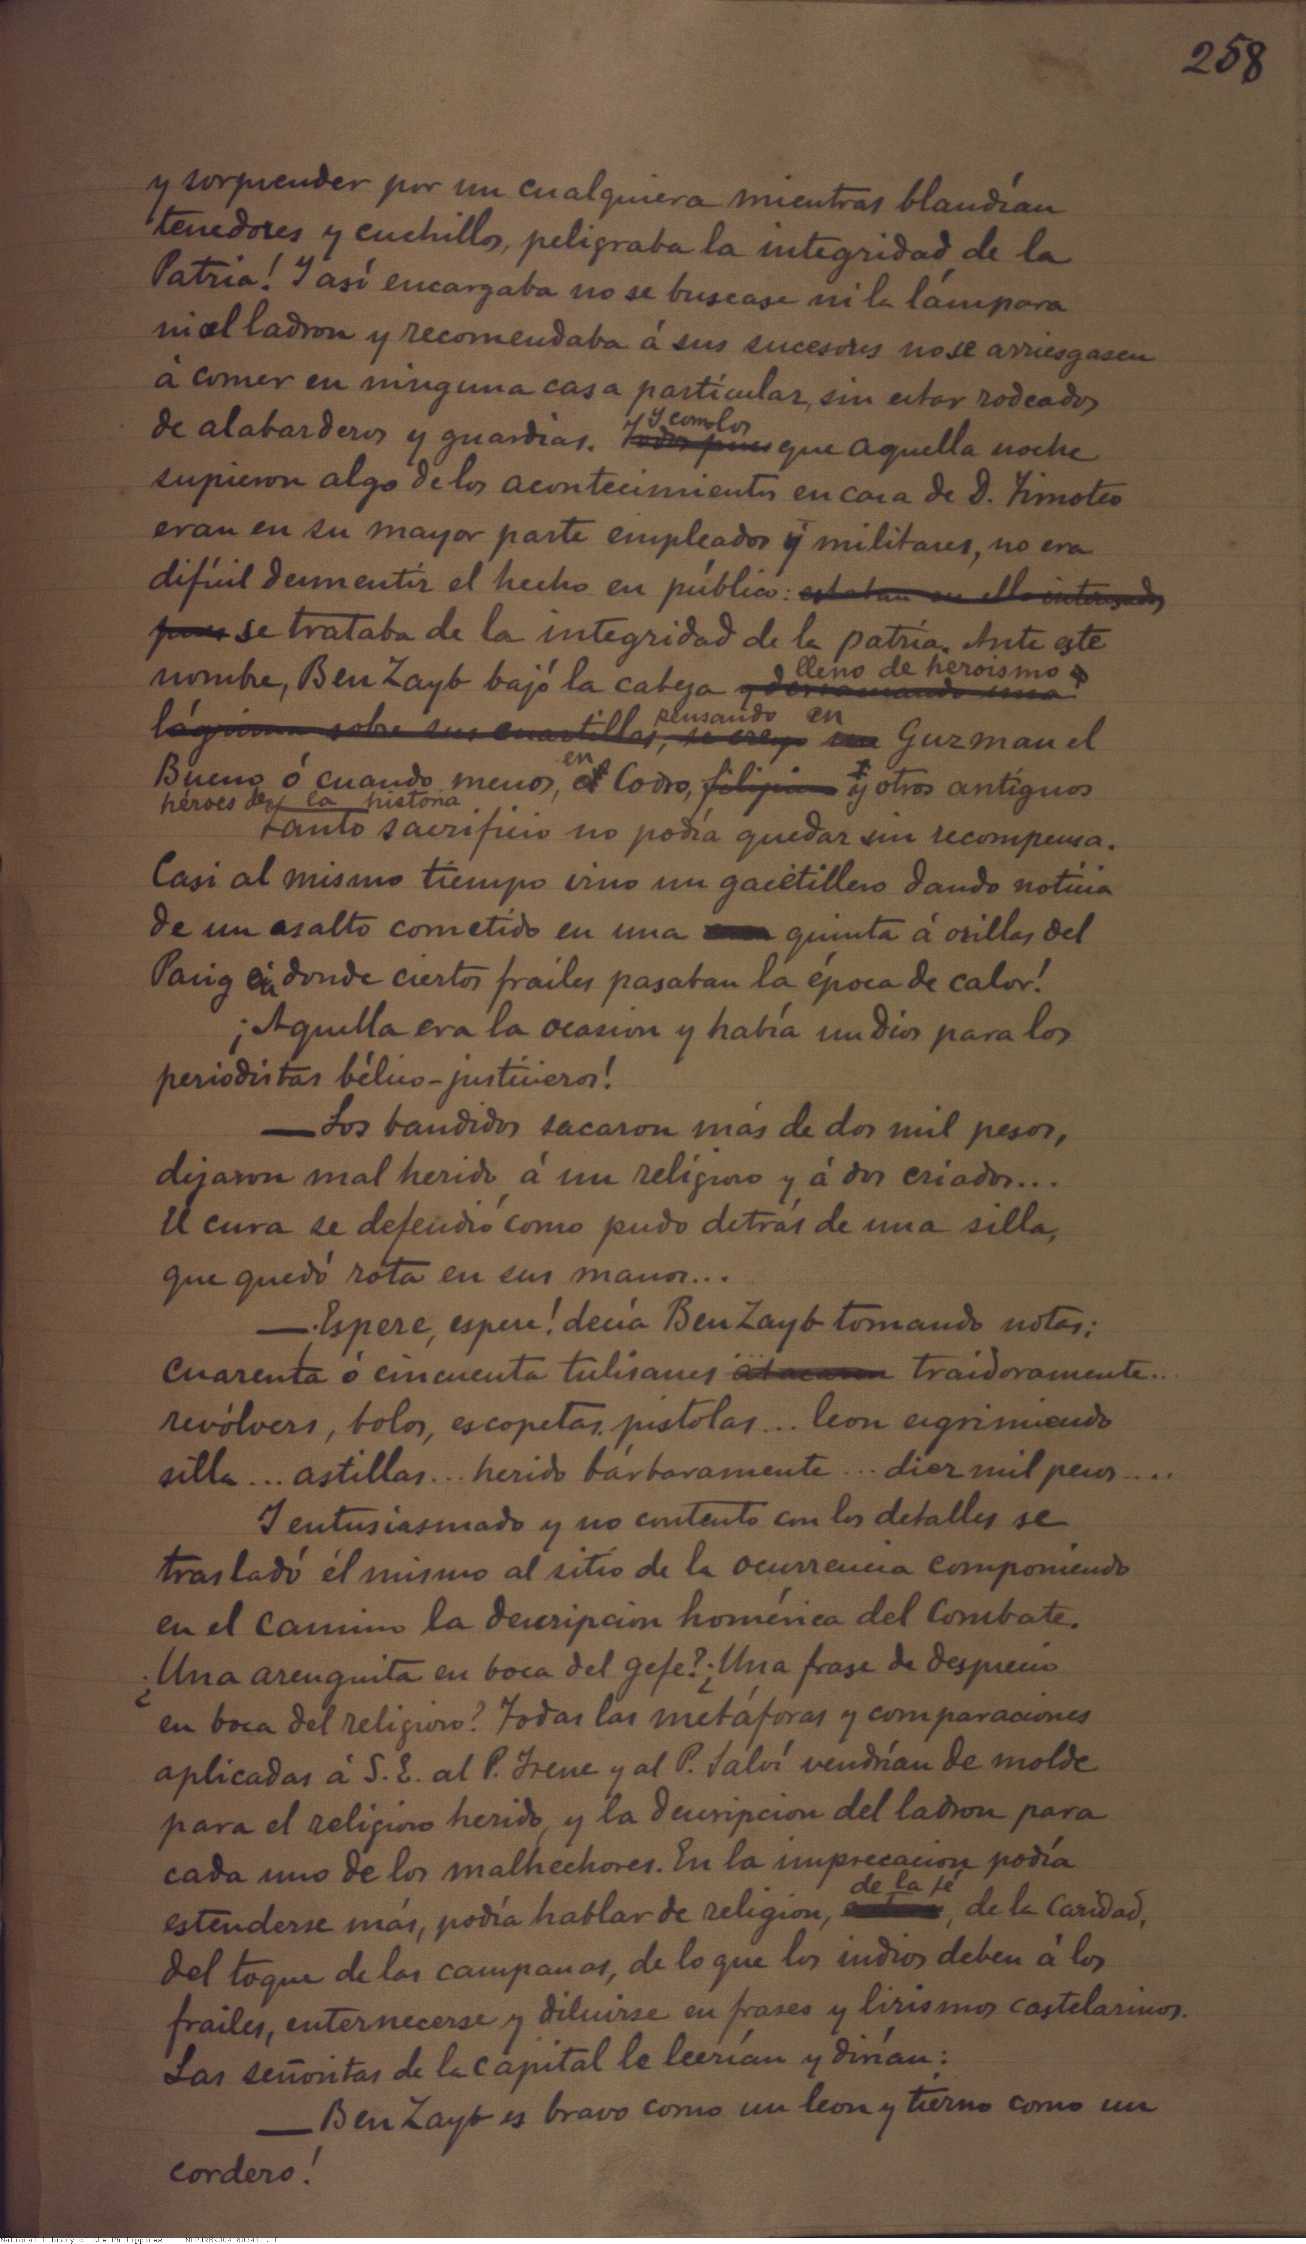 258
y sorprender por un cualquiera mientras blandían
tenedores y cuchillos, peligraba la integridad de la
Patria! Y así encargaba no se buscase ni la lámpara
ni el ladron y recomendaba á sus sucesores no se arriesgasen
á comer en ninguna casa particular, sin estar rodeados
de alabarderos y guardias. Y como los
Todos pues que aquella noche
supieron algo de los acontecimientos en casa de D. Timoteo
eran en su mayor parte empleados y militares, no era
difícil desmentir el hecho en público: estaban en ello interesados
pues se trataba de la integridad de la patria. Ante este
lleno de heroismo
nombre, Ben Zayb bajó la cabeza y derramando una
pensando en
lágrima sobre sus cuartillas, se creyo un Guzman el
en
Bueno ó cuando menos, Codro, y otros antíguos
héroes de la historia
tanto sacrificio no podía quedar sin recompensa.
Casi al mismo tiempo vino un gacetillero dando noticia
de un asalto cometido en una quinta á orillas del
Pasig en donde ciertos frailes pasaban la época de calor!
¡Aquella era la ocasion y había un dios para los
periodistas bélico-justicieros!
—Los bandidos sacaron más de dos mil pesos,
dejaron mal herido á un religioso y á dos criados...
El cura se defendió como pudo detrás de una silla,
que quedó rota en sus manos...
—¡Espere, espere! decía Ben Zayb tomando notas;
cuarenta ó cincuenta tulisanes atacaron traidoramente...
revólvers, bolos, escopetas, pistolas... leon esgrimiendo
silla... astillas... herido bárbaramente... diez mil pesos....
Y entusiasmado y no contento con los detalles se
trasladó él mismo al sitio de la ocurrencia componiendo
en el camino la descripcion homérica del combate.
¿Una arenguita en boca del gefe? ¿Una frase de desprecio
en boca del religioso? Todas las metáforas y comparaciones
aplicadas á S. E. al P. Irene y al P. Salví vendrían de molde
para el religioso herido, y la descripcion del ladron para
cada uno de los malhechores. En la imprecacion podía
de la fé
estenderse más, podía hablar de religion, , de la caridad,
del toque de las campanas, de lo que los indios deben á los
frailes, enternecerse y diluirse en frases y lirismos castelarinos.
Las señoritas de la capital le leerían y dirían:
—Ben Zayb es bravo como un leon y tierno como un
cordero!